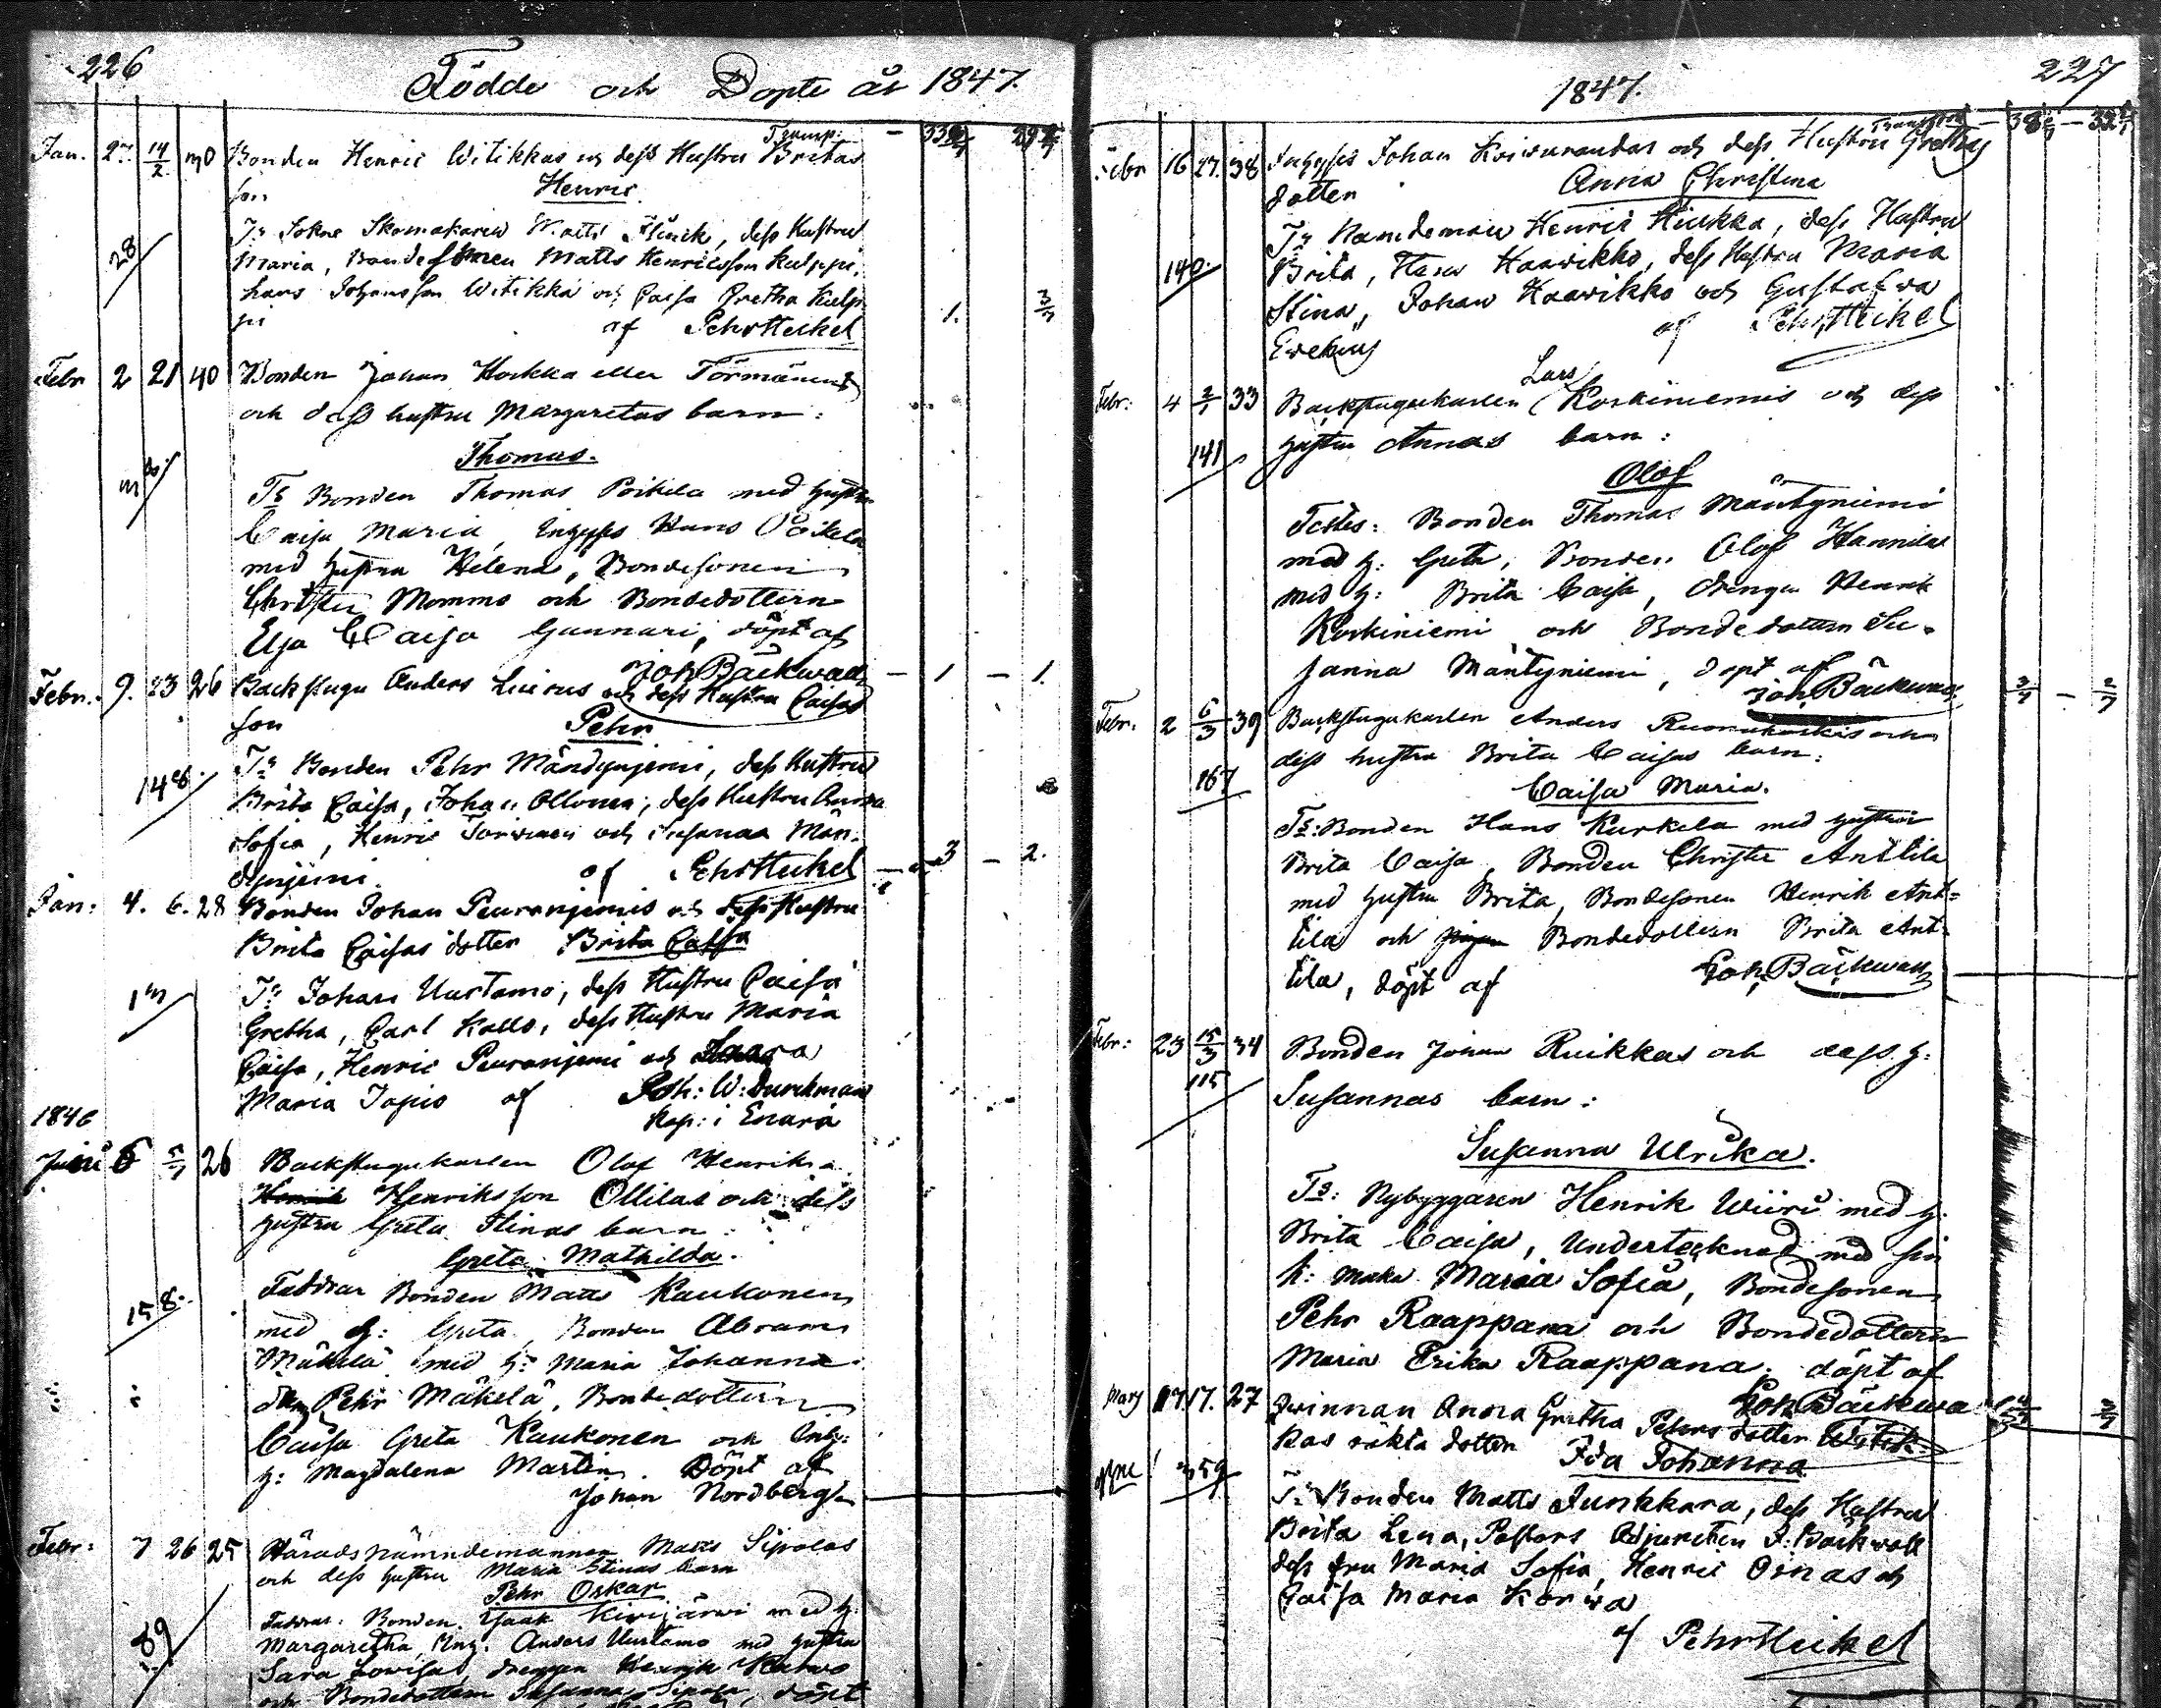 226
Födde och Döpte år 1847.
Transp:
Jan. 27. 14/2 30 Bonden Henric Witikkas och dess Hustru Britas
son Henric
Ts Sokne Skomakaren Matts Flinck, dess Hustru
Maria, Bondesonen Matts Henricsson Kulppi,
hans Johansson Witikka och Caisa Gretha Kulp
pi af Pehr Heikel 1. 3/7
28
Febr 2 21 40 Bonden Johan Hockka eller Törmänens
och dess hustru Margaretas barn:
Thomas.
Ts Bonden Thomas Poikela med hustru
Caisa Maria, Inhyses Hans Poikela
med hustru Helena, Bondesonen
Christer Mommo och Bondedottern
Elsa Caisa Gunnari, döpt af
Joh Bäckwall 1 — 1.
Febr. 9. 23 26 Backstugu Anders Luirus och dess Hustru Caisas
son Pehr
148.
Ts Bonden Pehr Mändynjemi, dess Hustru
Brita Caisa, Johan Ollonen, dess Hustru Anna
Sofia, Henric Torvinen och Susanna Män-
dynjemi. af Pehr Heikel — 3 — 2.
Jan: 4. 6. 28 Bonden Johan Peuranjemis och dess Hustru
Brita Caisas dotter Brita Caisa
Ts Johan Uurtamo, dess Hustru Caisa
Gretha, Carl Kallo, dess Hustru Maria
Caisa, Henric Peuranjemi och Saara
Maria Tapio af Joh: W: Durchman
Kap: i Enara
1846
Juni 6 5/7 26 Backstugukarlen Olof Henriks
Henrik Henriksson Ollilas och dess
hustru Greta Stinas barn:
Greta Mathilda.
158.
Faddrar Bonden Matts Kaukonen
med h: Greta, Bonden Abram
Mäkelä med h: Maria Johanna
drn Pehr Mäkelä, Bondedottern
Caisa Greta Kaukonen och Enk:
h: Magdalena Martin. Döpt af
Johan Nordberg
Febr: 7 26 25 Häradsnämndemannen Matts Sipolas
och dess hustru Maria Stinas barn
Pehr Oskar
89
Faddrar: Bonden Isaak Kivijärvi med h.
Margaretha, Anders Uurtamo med hustru
Sara Lowisa, drengen Henrik
och Bondedottern Susanna Sipola, döpt
227
1847.
Transport
Febr 16 27. 38 Inhyses Johan Koivurantas och dess Hustru Grethas
dotter Anna Christina
Ts Nämndeman Henric Hiukka, dess Hustru
140. Brita, Hans Haawikko, dess Hustru Maria
Stina, Johan Haawikko och Gustafwa
af Pehr Heikel
Febr: 4 2/1 33 Backstugukarlen Lars Korkiniemis och dess
141 hustru Annas barn:
Olof
Testes: Bonden Thomas Mäntyniemi
med h: Greta, Bonden Olof Hannila
med h: Brita Caisa, drengen Henrik
Korkiniemi och Bondedottern Su-
sanna Mäntyniemi, döpt af
Joh. Bäckwall
Febr: 2 6/3 39 Backstugukarlen Anders Ruonakoskis och
dess hustru Brita Caisas barn:
167 Caisa Maria.
Ts: Bonden Hans Kurkela med hustru
Brita Caisa, Bonden Christer Anttila
med hustru Brita, Bondesonen Henrik Ant=
tila och pigan Bondedottern Brita Ant-
tila, döpt af Joh. Bäckwall
Febr: 23 15/3 34 Bonden Johan Ruikkas och dess h:
115 Susannas barn:
Susanna Ulrika.
Ts: Nybyggaren Henrik Wiiri med h.
Brita Caisa, Undertecknad med sin
k: maka Maria Sofia, Bondesonen
Pehr Raappana och Bondedottern
Maria Erika Raappana. döpt af
Joh. Bäckwall
Mars 17. 27 Qwinnan Anna Gretha Pehrsdotter Witik-
kas oäkta dotter Ida Johanna
359
Ts Bonden Matts Junkkara, dess Hustru
Brita Lena, Pastors Adjuncten J. Bäckwall
dess fru Maria Sofia, Henric Oinas och
Caisa Maria Korwa
af Pehr Heikel